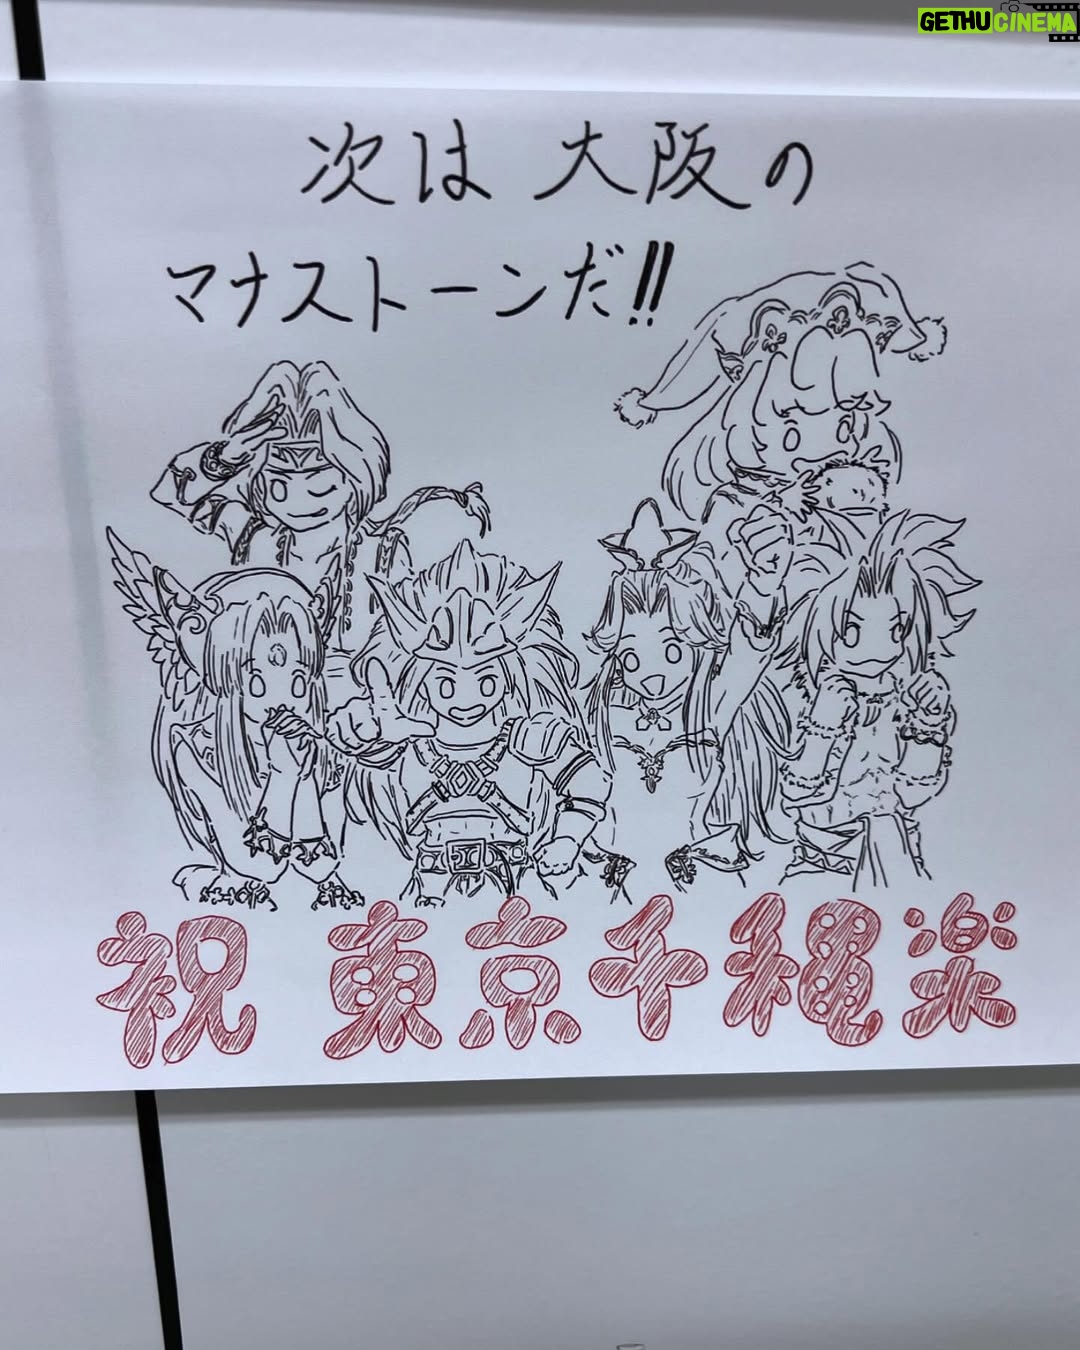 GETHUCINEMA
次は 大阪の
マナストーンだ!!
祝 東京千穐楽